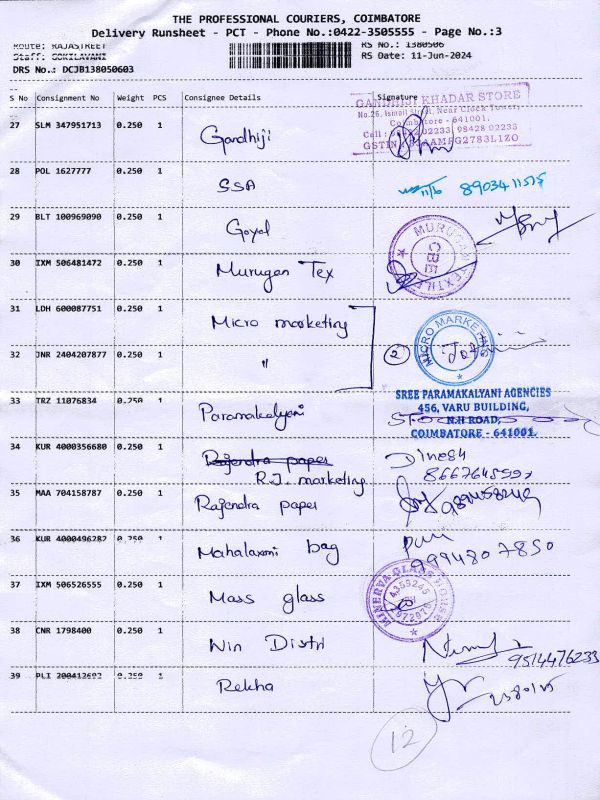 THE PROFESSIONAL COURIERS, COIMBATORE
Delivery Runsheet - PCT - Phone No.:0422-3505555 - Page No.:3
Route: RAJASTREET
RS No.: 1380506
Staff: GOKILAVANI
RS Date: 11-Jun-2024
DRS No.: DCJB138050603
S No Consignment No Weight PCS Consignee Details Signature
GANDHIJI KHADAR STORE
No.26, Ismail Street, Near Clock Tower,
Coimbatore - 641001.
02233, 98428 02233
27 SLM 347951713 0.250 1 Gandhiji
28 POL 1627777 0.250 1 SSA 11/6 8903411515
29 BLT 100969090 0.250 1 Goyal
MURUGAN TEXTILE
CBE
30 IXM 506481472 0.250 1 Murugan Tex
31 LDH 600087751 0.250 1 Micro marketing
MICRO MARKETING
32 JNR 2404207877 0.250 1 " 2
33 TRZ 11076834 0.250 1 Paramakalyani
SREE PARAMAKALYANI AGENCIES
456, VARU BUILDING,
N.H ROAD,
COIMBATORE - 641001.
34 KUR 4000356680 0.250 1 Rajendra paper Dinesh
R.J. marketing
35 MAA 704158787 0.250 1 Rajendra paper
36 KUR 4000496282 0.250 1 Mahalaxmi bag
9994807850
37 IXM 506526555 0.250 1 Mass glass
MINERVA GLASS HOUSE
38 CNR 1798400 0.250 1 Win Distri
9514476233
39 PLI 200412692 0.250 1 Rekha
12